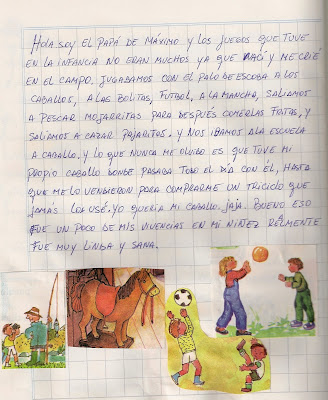 HOLA SOY EL PAPÁ DE MÁXIMO Y LOS JUEGOS QUE TUVE
EN LA INFANCIA NO ERAN MUCHOS YA QUE NACÍ Y ME CRIÉ
EN EL CAMPO. JUGABAMOS CON EL PALO DE ESCOBA A LOS
CABALLOS, A LAS BOLITAS, FUTBOL, A LA MANCHA, SALIAMOS
A PESCAR MOJARRITAS PARA DESPUÉS COMERLAS FRITAS, Y
SALÍAMOS A CAZAR PAJARITOS. Y NOS IBAMOS A LA ESCUELA
A CABALLO. Y LO QUE NUNCA ME OLVIDO ES QUE TUVE MI
PROPIO CABALLO DONDE PASABA TODO EL DÍA CON ÉL, HASTA
QUE ME LO VENDIERON PARA COMPRARME UN TRICICLO QUE
JAMÁS LO USÉ. YO QUERÍA MI CABALLO. JAJA. BUENO ESO
FUE UN POCO DE MIS VIVENCIAS EN MI NIÑEZ RELMENTE
FUE MUY LINDA Y SANA.